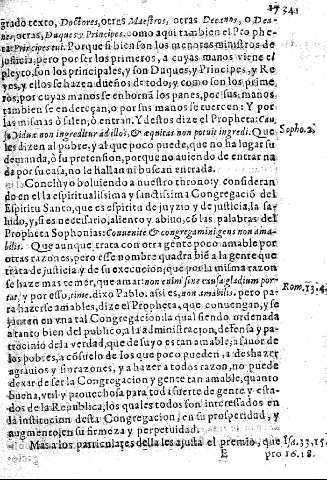 17341
grado texto, Doctores, otres Maestros, otras Decanos, o Dea-
nes, otras, Duques y Principes. como aqui tambien el Prophe
ta Principes tui. Porque si bien son los menores ministros de
justicia, pero por ser los primeros, a cuyas manos viene el
pleyto, son los principales, y son Duques, y Principes, y Re
yes, y ellos se hazen dueños de todo, y como son los prime
ros, por cuyas manos se enhornã los panes, por sus manos
tambien se endereçan, o por sus manos se tuercen: Y por
las mismas o salen, ò entran. Y destos dize el Propheta: Cau
sa viduæ non ingreditur ad illos, & æquitas non potuit ingredi. Que
les dizen al pobre, y al que poco puede, que no ha lugar su
demanda, ò su pretension, porque no auiendo de entrar na
da por su casa, no le hallan ni buscan entrada.
Sopho. 2.
Concluyo boluiendo a nuestro throno: y consideran
do en el la espiritualissima y sanctissima Congregació del
Espiritu Santo, que es espiritu de juyzio y de justicia, la sa
ludo, y si es necessario, aliento y abino, cõ las palabras del
Propheta Sophonias: Conuenite & congregamini gens non ama-
bilis. Que aunque trata con otra gente poco amable por
otras razones, pero esse nombre quadra biẽ a la gente que
trata de justicia y de su execucion, que por la misma razon
se haze mas temer, que amar: non enim sine causa gladium por-
tat, y por esso, time. dixo Pablo. assi es, non amabilis. pero pa
ra hazerse amables, dize el Propheta, que conuengan, y se
junten en vna tal Congregacion: la qual siendo ordenada
a tanto bien del publico, a la administracion, defensa y pa
trocinio de la verdad, que de suyo es tan amable; a fauor de
los pobres, a cõsuelo de los que poco pueden, a deshazer
agrauios y sinrazones, y a hazer a todos razon, no puede
dexar de ser la Congregacion y gente tan amable, quanto
buena, vtil y prouechosa para toda suerte de gente y esta-
dos de la Republica, los quales todos son interessados en
la institucion desta Congregacion, en su prosperidad, y
augmento, en su firmeza y perpetuidad.
Rom. 13. 4.
Mas a los particulares della les ajusta el premio, que
Isa. 33. 15.
E
pro 16. 18.